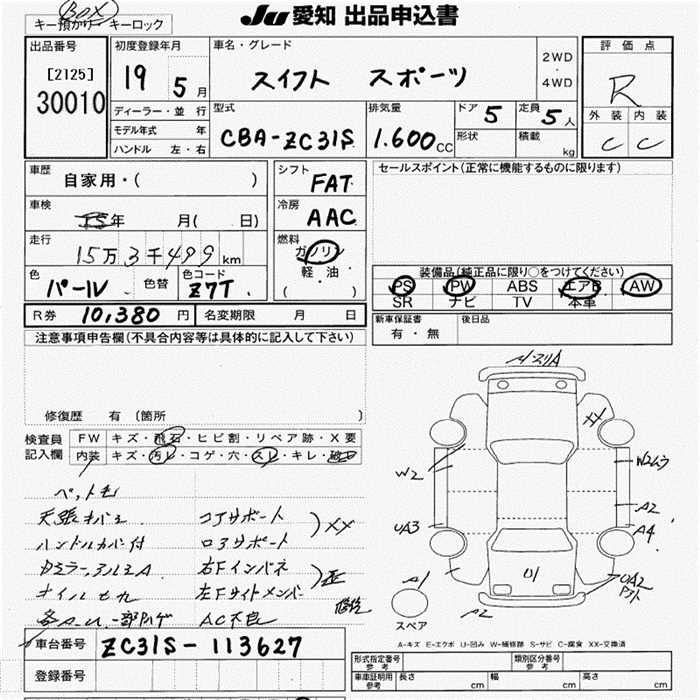 BOX
JU 愛知 出品申込書
キー預かり・キーロック
出品番号
[2125]
30010
初度登録年月
19 5月
ディーラー・並 行
モデル年式 年
ハンドル 左・右
車名・グレード
スイフト スポーツ
2WD
・
4WD
型式
CBA-ZC31S
排気量
1.600CC
ドア 5
定員 5人
形状
積載 kg
評 価 点
R
外 装 内 装
C C
車歴
自家用・( )
車検
年 月( 日)
走行
15万3千499km
色
パール
色替
色コード
Z7T
シフト
FAT
冷房
AAC
燃料
ガソリン
・
軽・油
( )
R券 10,380円
名変期限 月 日
セールスポイント(正常に機能するものに限ります)
装備品(純正品に限り○をつけてください)
PS PW ABS エアB AW
SR ナビ TV 本車
新車保証書
有・無
後日品
注意事項申告欄(不具合内容等は具体的に記入して下さい)
修復歴 有 (箇所 )
検査員
記入欄
FW キズ・飛石・ヒビ割・リペア跡・X要
内装 キズ・汚レ・コゲ・穴・スレ・キレ・破
ペット毛
ハンドルカバー付
コアサポート
XX
ロアサポート
右Fインパネ
左Fサイドメンバー
AC不良
XX
W2
A2
A4
UA3
A1
A2
U1
UA2
スペア
A-キズ E-エクボ U-凹み W-補修跡 S-サビ C-腐食 XX-交換済
車台番号 ZC31S-113627
登録番号
形式指定番号
参 考
類別区分番号
参 考
車庫証明用
参考
長さ cm
幅 cm
高さ cm